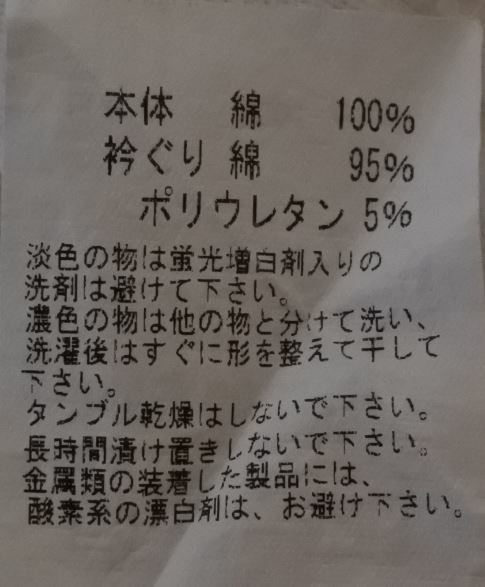 本体 綿 100%
衿ぐり 綿 95%
ポリウレタン 5%
淡色の物は蛍光増白剤入りの
洗剤は避けて下さい。
濃色の物は他の物と分けて洗い、
洗濯後はすぐに形を整えて干して
下さい。
タンブル乾燥はしないで下さい。
長時間漬け置きしないで下さい。
金属類の装着した製品には、
酸素系の漂白剤は、お避け下さい。